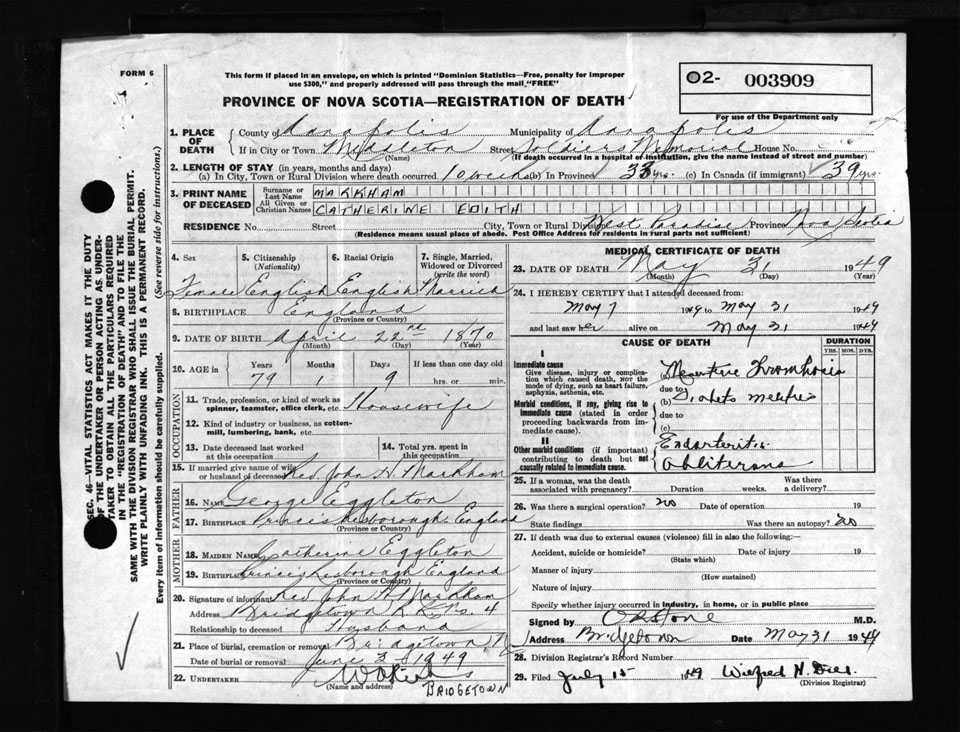 FORM 6
This form if placed in an envelope, on which is printed "Dominion Statistics—Free, penalty for improper
use $300," and properly addressed will pass through the mail "FREE"
PROVINCE OF NOVA SCOTIA—REGISTRATION OF DEATH
02- 003909
For use of the Department only
SEC. 46—VITAL STATISTICS ACT MAKES IT THE DUTY
OF THE UNDERTAKER OR PERSON ACTING AS UNDER-
TAKER TO OBTAIN ALL THE PARTICULARS REQUIRED
IN THE "REGISTRATION OF DEATH" AND TO FILE THE
SAME WITH THE DIVISION REGISTRAR WHO SHALL ISSUE THE BURIAL PERMIT.
WRITE PLAINLY WITH UNFADING INK. THIS IS A PERMANENT RECORD.
Every item of information should be carefully supplied. (See reverse side for instructions.)
1. PLACE OF DEATH County of Annapolis Municipality of Annapolis
If in City or Town Middleton Street Soldiers Memorial House No.
(Name) (If death occurred in a hospital or institution, give the name instead of street and number)
2. LENGTH OF STAY (in years, months and days)
(a) In City, Town or Rural Division where death occurred 10 weeks (b) In Province 33 yrs. (c) In Canada (if immigrant) 39 yrs.
3. PRINT NAME OF DECEASED Surname or Last Name MARKHAM
All Given or Christian Names CATHERINE EDITH
RESIDENCE No. Street City, Town or Rural Division West Paradise Province Nova Scotia
(Residence means usual place of abode. Post Office Address for residents in rural parts not sufficient)
4. Sex 5. Citizenship (Nationality) 6. Racial Origin 7. Single, Married, Widowed or Divorced (write the word)
Female English English Married
8. BIRTHPLACE England
(Province or Country)
9. DATE OF BIRTH April 22nd 1870
(Month) (Day) (Year)
10. AGE in Years Months Days If less than one day old
79 1 9 hrs. or min.
OCCUPATION
11. Trade, profession, or kind of work as spinner, teamster, office clerk, etc. Housewife
12. Kind of industry or business, as cotton-mill, lumbering, bank, etc.
13. Date deceased last worked at this occupation 14. Total yrs. spent in this occupation
15. If married give name of wife or husband of deceased Rev. John H. Markham
FATHER
16. NAME George Eggleton
17. BIRTHPLACE Princes Risborough, England
(Province or Country)
MOTHER
18. MAIDEN NAME Catherine Eggleton
19. BIRTHPLACE Princes Risborough England
(Province or Country)
20. Signature of informant Rev. John H Markham
Address Bridgetown R.R. No. 4
Relationship to deceased Husband
21. Place of burial, cremation or removal Bridgetown, N
Date of burial or removal June 3 1949
22. UNDERTAKER
(Name and address) BRIDGETOWN
MEDICAL CERTIFICATE OF DEATH
23. DATE OF DEATH May 31 1949
(Month) (Day) (Year)
24. I HEREBY CERTIFY that I attended deceased from:
May 7 1949 to May 31 1949
and last saw her alive on May 31 1949
CAUSE OF DEATH DURATION
YRS. MOS. DYS.
I
Immediate cause
Give disease, injury or complication which caused death, NOT the mode of dying, such as heart failure, asphyxia, asthenia, etc. (a) Mesenteric Thrombosis
due to
Morbid conditions, if any, giving rise to immediate cause (stated in order proceeding backwards from immediate cause). (b) Diabetes mellitis
due to
(c)
II
Other morbid conditions (if important) contributing to death but not causally related to immediate cause. Endarteritis
Obliterans
25. If a woman, was the death associated with pregnancy? Duration weeks. Was there a delivery?
26. Was there a surgical operation? no Date of operation 19
State findings Was there an autopsy? no
27. If death was due to external causes (violence) fill in also the following:
Accident, suicide or homicide? Date of injury 19
(State which)
Manner of injury
(How sustained)
Nature of injury
Specify whether injury occurred in industry, in home, or in public place
Signed by Stone M.D.
Address Bridgetown Date May 31 1949
28. Division Registrar's Record Number
29. Filed July 15 1949 Wilfred H.
(Division Registrar)